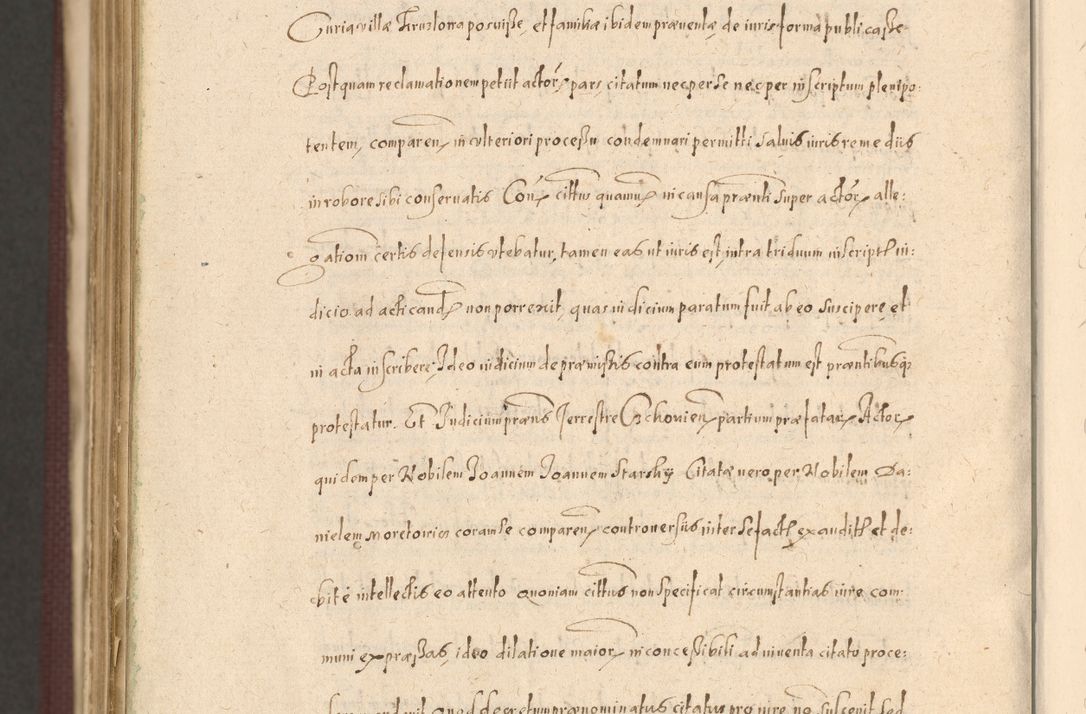 Curia villæ posuiße, et familiæ ibidem præventæ de iuris forma publicaße
Postquam reclamationem petiit actor, pars citatum nec per se nec per inscriptum plenipo:
tentem, comparen, in ulteriori proceßu condemnari permitti salvis iuris remediis
in robore sibi conservatis Con cittus quamvis in causa prænti super actor alle:
gationi certis defensis utebatur, tamen eas ut iuris est, intra triduum inscript iu:
dicio ad acticand non porrexit, quas iudicium paratum fuit ab eo suscipere, et
in acta inscribere, Ideo iudicium de præmistis contra eum protestatum est præntibusq
protestatur. Et Iudicium præns Terrestre Czchovien partium præfatar Actor
quidem per Nobilem Joannem Joannem Starsky Citatæ vero per Nobilem Da:
nielem Moretonien coram se comparen controversiis inter se fact exaudit et de:
bite intellectis eo attento Quoniam cittus non specificat circumstantias iure com
muni expræßas, ideo dilatione maior inconceßibili adinventa citato proce:
quod decretum prænominatus citatus pro iure no suscepit sed